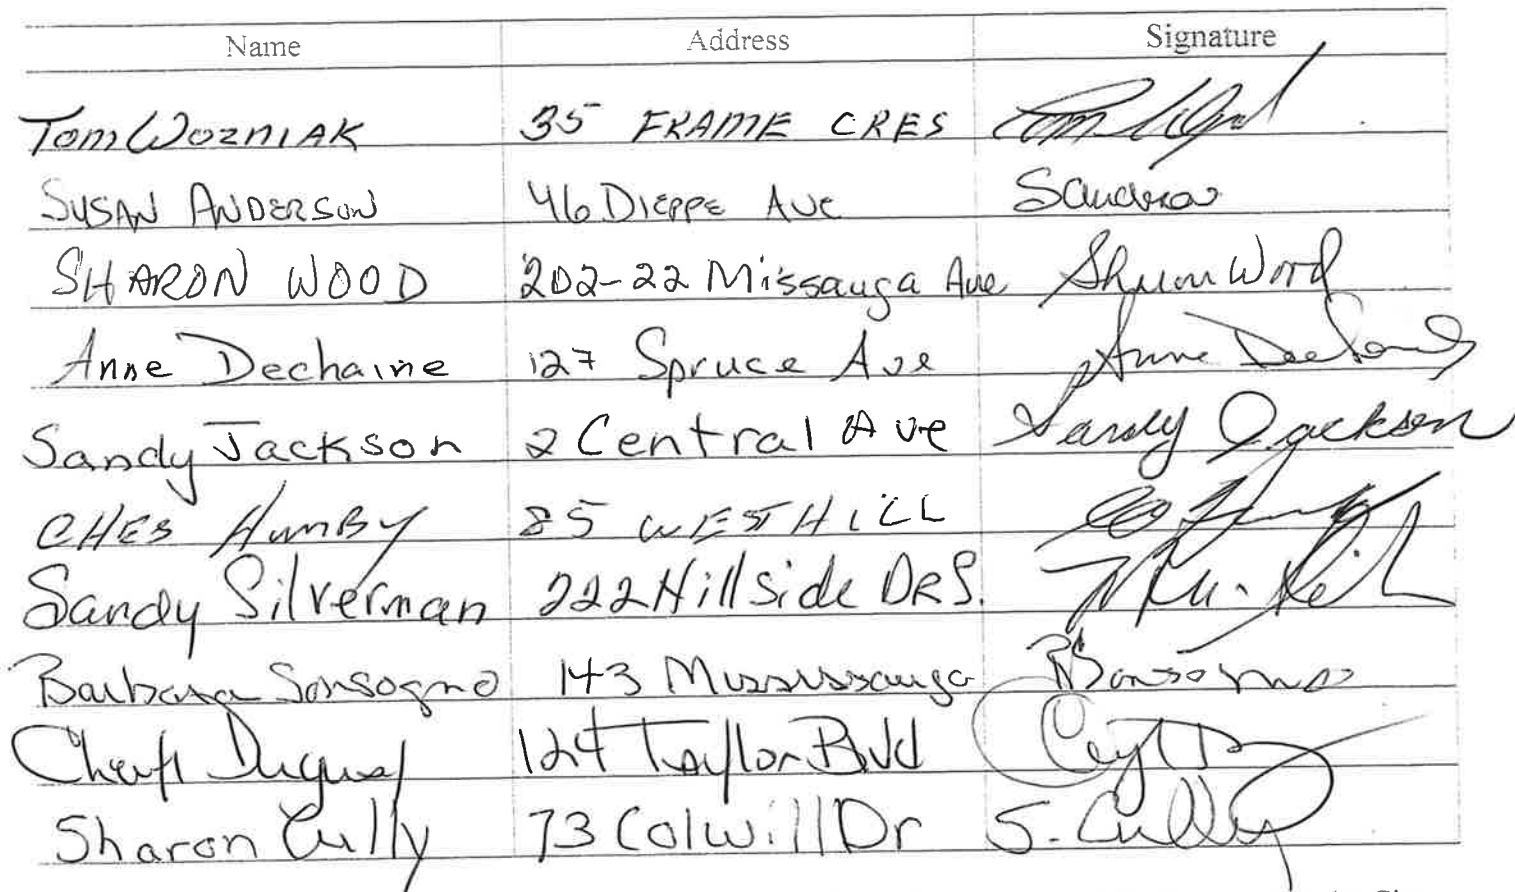 Name Address Signature
Tom WOZNIAK 35 FRAME CRES
SUSAN ANDERSON 46 DIEPPE AVE
SHARON WOOD 202-22 Missauga Ave Sharon Wood
Anne Dechaine 127 Spruce Ave Anne
Sandy Jackson 2 Central Ave Sandy Jackson
CHES HUMBY 85 WESTHILL
Sandy Silverman 222 Hillside DR S.
Barbara Sonsogno 143 Mississauga
Cheryl 124 Taylor Blvd
Sharon Cully 73 Colwill Dr S. Cully